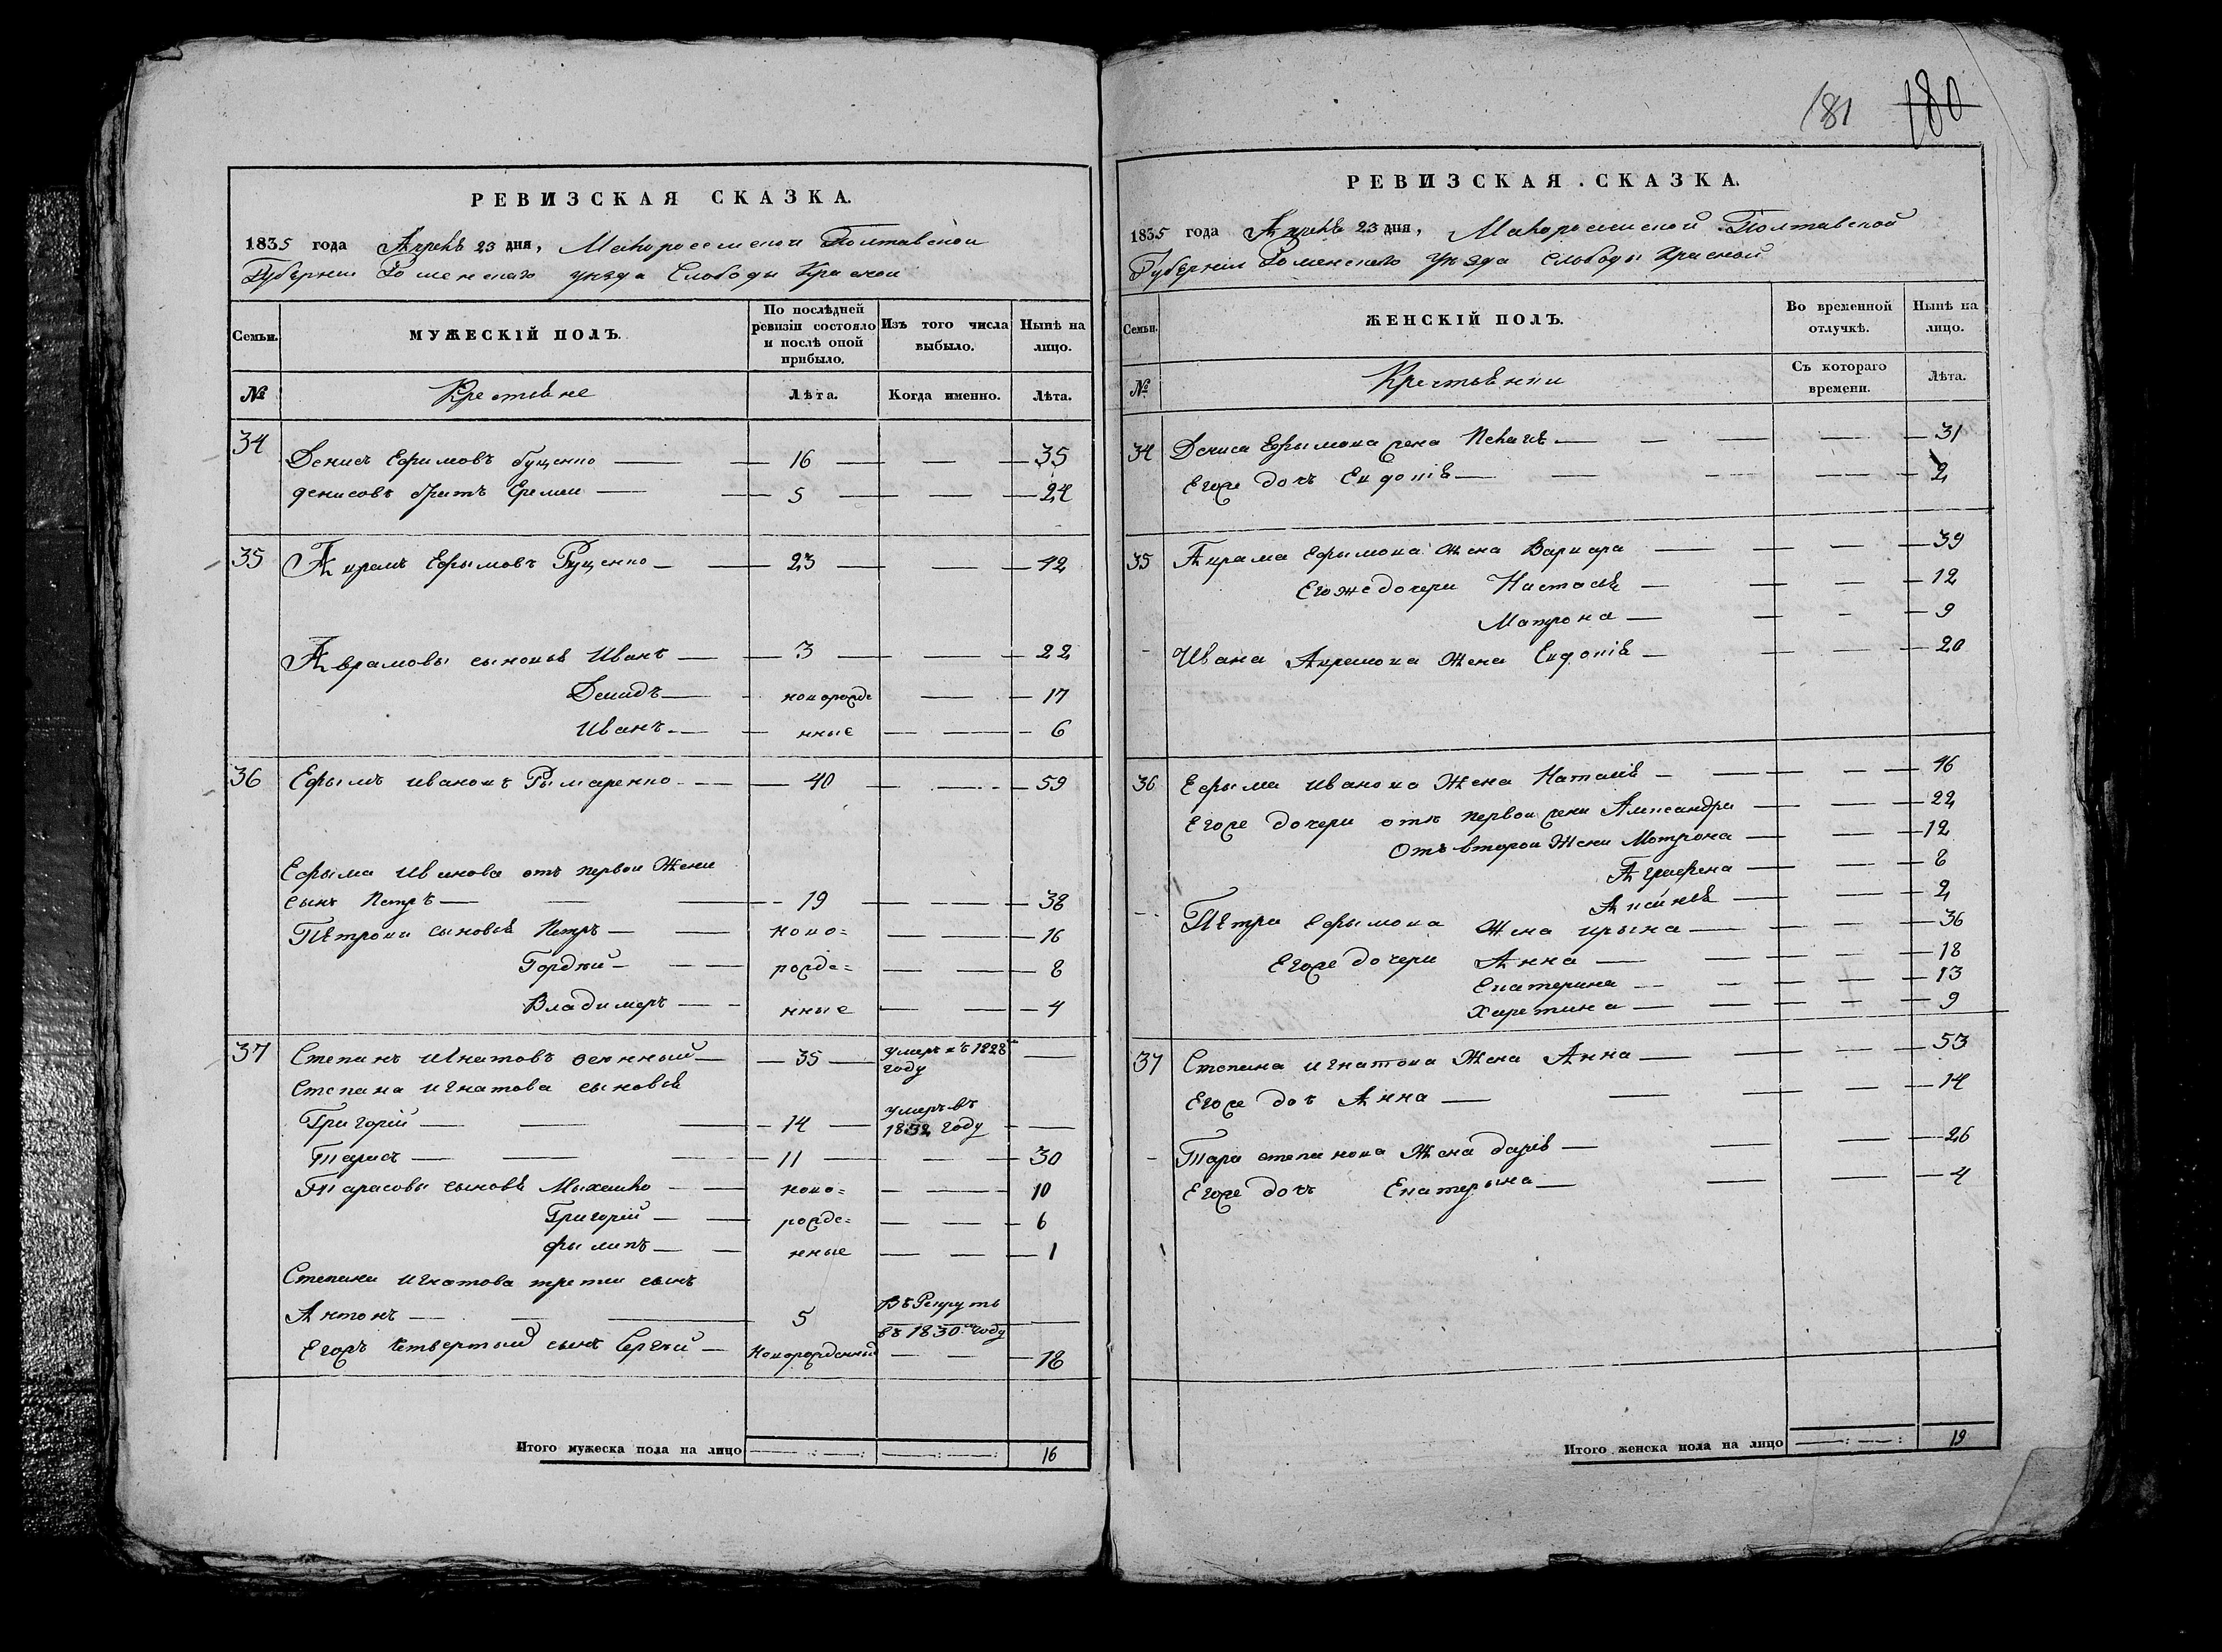 РЕВИЗСКАЯ СКАЗКА.
1835 года Апрѣлѣ 23 дня, Малороссиской Полтавской
Губернии Роменскаго уезда Слободы Красной
Семьи.
МУЖЕСКІЙ ПОЛЪ.
По послѣдней ревизіи состояло и послѣ оной прибыло.
Изъ того числа выбыло.
Нынѣ на лицо.
№
Крестьяне
Лѣта.
Когда именно.
Лѣта.
34
Денисъ Ефимовъ — 16 — — — 35
денисовъ братъ Еремеи — 5 — — — 24
35 Аврамъ Ефымовъ — 23 — — — 42
Аврамовы сыновья Иванъ — 3 — — — 22
Демидъ — новорожде — 17
Иванъ — нные — — 6
36 Ефымъ Ивановъ Рымаренко — 40 — — — 59
Ефыма Иванова отъ первои Жени
сынъ Петръ — 19 — — — 38
Петрови сыновья Петръ — ново= — — 16
Гордѣй — рожде= — — 8
Владимеръ — нные — — 4
37 Степанъ Игнатовъ — 35 — умеръ въ 1828 году —
Степана Игнатова сыновья
Григорій — 14 — умеръ въ 1832 году —
Тарасъ — 11 — — — 30
Тарасовы сыновья Михайло — ново= — — 10
Григорій — рожде= — — 6
Филипъ — нные — — 1
Степана Игнатова третии сынъ
Антонъ — 5 Въ Рекруты въ 1830 году —
Егожъ четвертый сынъ Сергѣй — Новорожденный — — 18
Итого мужеска пола на лицо 16
181 180
РЕВИЗСКАЯ СКАЗКА.
1835 года Апрѣлѣ 23 дня, Малороссиской Полтавской
Губерніи Роменскаго Уезда Слободы Красной
Семьи.
ЖЕНСКІЙ ПОЛЪ.
Во временной отлучкѣ.
Нынѣ на лицо.
№
Крестьянки
Съ котораго времени.
Лѣта.
34 Дениса Ефымова жена — — — 31
Егоже дочь Евдокія — — — 2
35 Аврама Ефымова Жена Варвара — — — 39
Егоже дочери Настася — — — 12
Матрона — — — 9
Ивана Аврамова Жена Евдокія — — — 20
36 Ефыма Иванова Жена Наталія — — — 46
Егоже дочери отъ первои жени Александра — — — 22
Отъ второи Жени Мотрона — — — 12
Аграфена — — — 8
— — — 2
Петра Ефымова Жена Ирына — — — 36
Егоже дочери Анна — — — 18
Екатерина — — — 13
Харетина — — — 9
37 Степана Игнатова Жена Анна — — — 53
Егоже доч Анна — — — 14
Тара степанова Жена дарія — — — 26
Егоже дочъ Екатерына — — — 4
Итого женска пола на лицо 19